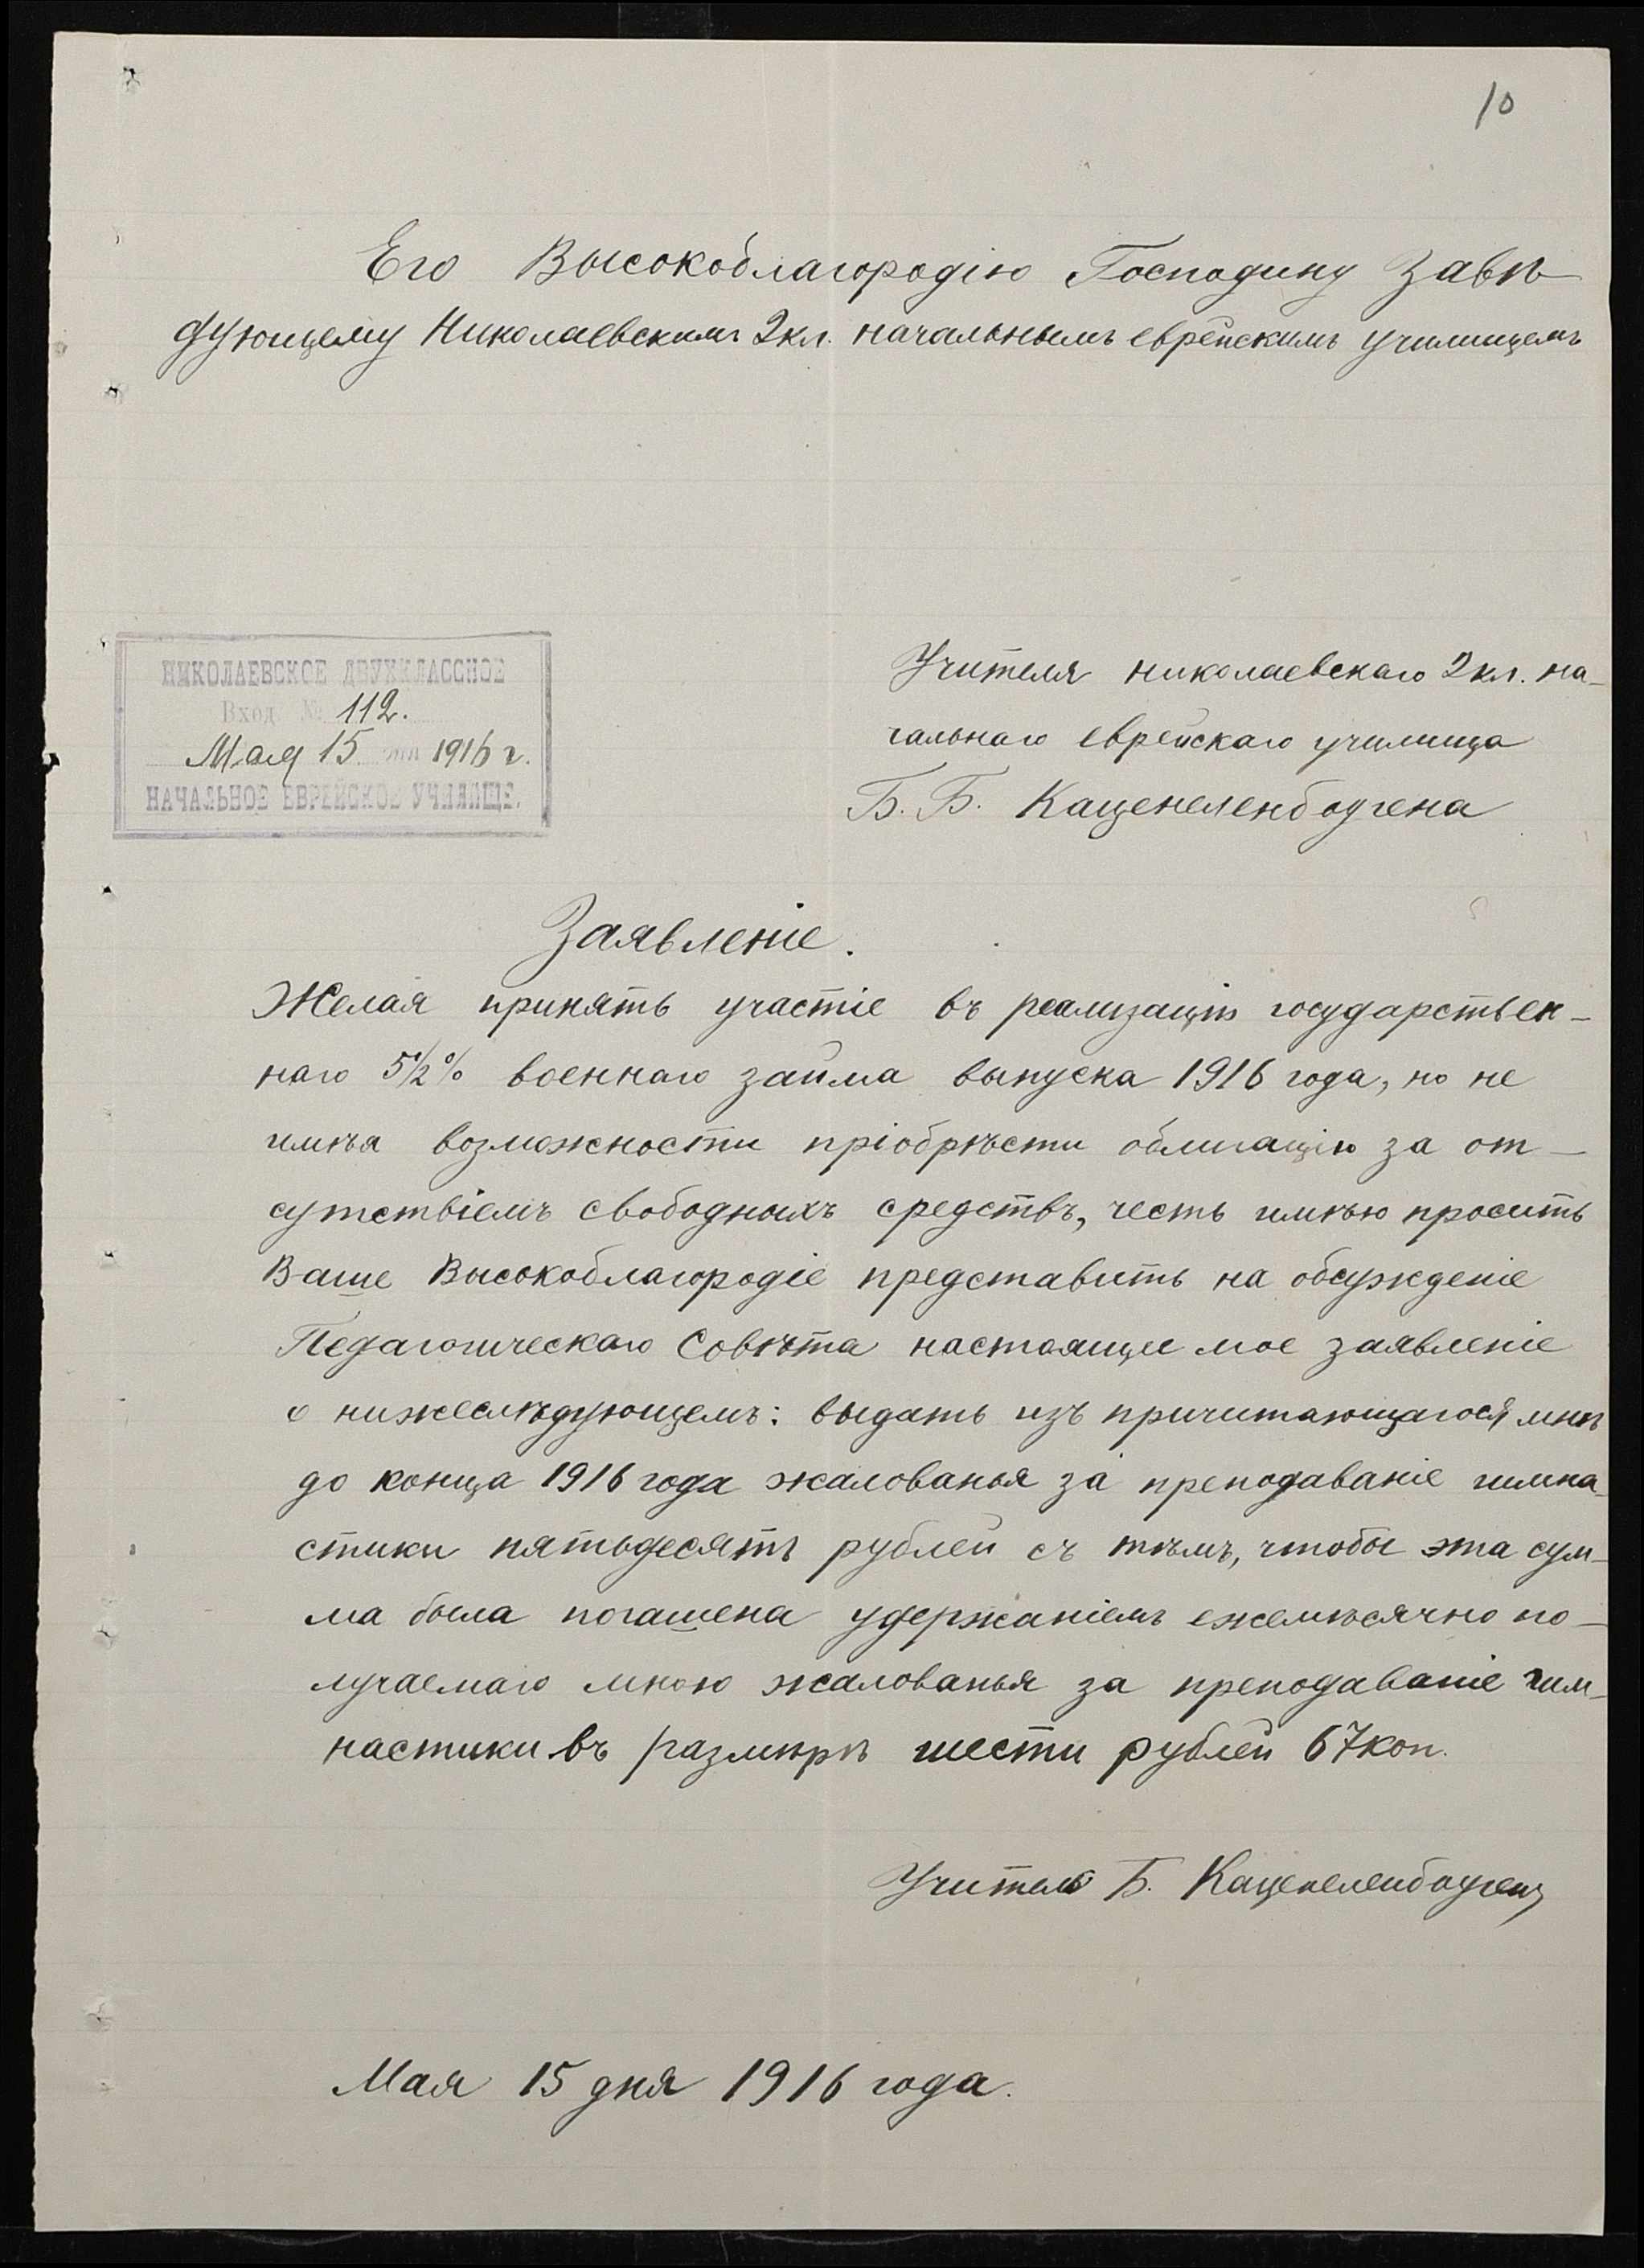 10
Его Высокоблагородію Господину Завѣ-
дующему Николаевскимъ 2кл. начальнымъ еврейскимъ училищемъ
НИКОЛАЕВСКОЕ ДВУХКЛАССНОЕ
Вход № 112.
Мая 15 дня 1916 г.
НАЧАЛЬНОЕ ЕВРЕЙСКОЕ УЧИЛИЩЕ.
Учителя николаевскаго 2кл. на-
чальнаго еврейскаго училища
Б. Б. Каценеленбогена
Заявленіе.
Желая принять участіе въ реализаціи государствен-
наго 5½% военнаго займа выпуска 1916 года, но не
имѣя возможности пріобрѣсти облигацію за от-
сутствіемъ свободныхъ средствъ, честь имѣю просить
Ваше Высокоблагородіе представить на обсужденіе
Педагогическаго Совѣта настоящее мое заявленіе
о нижеслѣдующемъ: выдать изъ причитающагося мнѣ
до конца 1916 года жалованья за преподаваніе гимна-
стики пятьдесятъ рублей съ тѣмъ, чтобы эта сум-
ма была погашена удержаніемъ ежемѣсячно по-
лучаемаго мною жалованья за преподаваніе гим-
настики въ размѣрѣ шести рублей 67коп.
Учитель Б. Каценеленбогенъ
Мая 15 дня 1916 года.